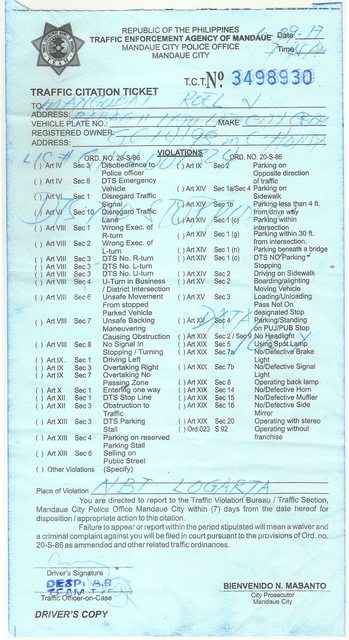 REPUBLIC OF THE PHILIPPINES
TRAFFIC ENFORCEMENT AGENCY OF MANDAUE
MANDAUE CITY POLICE OFFICE
MANDAUE CITY
Date 29-17
Time
T.C.T. No. 3498930
TRAFFIC CITATION TICKET
TO
ADDRESS:
VEHICLE PLATE NO.: MAKE
REGISTERED OWNER:
ADDRESS:
VIOLATIONS
ORD. NO. 20-S-86
( ) Art IV Sec 3 Disobedience to Police officer
( ) Art IV Sec 8 DTS Emergency Vehicle
( ) Art V Sec 1 Disregard Traffic Signal
( ) Art VI Sec 10 Disregard Traffic Lane
( ) Art VIII Sec 1 Wrong Exec. of R-turn
( ) Art VIII Sec 2 Wrong Exec. of L-turn
( ) Art VIII Sec 3 DTS No. R-turn
( ) Art VIII Sec 3 DTS No. L-turn
( ) Art VIII Sec 3 DTS No. U-turn
( ) Art VIII Sec 4 U-Turn in Business / District Intersection
( ) Art VIII Sec 6 Unsafe Movement From stopped Parked Vehicle
( ) Art VIII Sec 7 Unsafe Backing Maneuvering Causing Obstruction
( ) Art VIII Sec 8 No Signal In Stopping / Turning
( ) Art IX. Sec 1 Driving Left
( ) Art IX Sec 3 Overtaking Right
( ) Art IX Sec 7 Overtaking No Passing Zone
( ) Art X Sec 1 Entering one way
( ) Art XII Sec 1 DTS Stop Line
( ) Art XII Sec 3 Obstruction to Traffic
( ) Art XIII Sec 3 DTS Parking Stall
( ) Art XIII Sec 4 Parking on reserved Parking Stall
( ) Art XIII Sec 6 Selling on Public Street
( ) Other Violations (Specify)
ORD. NO. 20-S-86
( ) Art IX Sec 2 Parking on Opposite direction of traffic
( ) Art XIV Sec 1a/Sec 4 Parking on Sidewalk
( ) Art XIV Sec 1b Parking less than 4 ft. from drive way
( ) Art XIV Sec 1 (c) Parking within intersection
( ) Art XIV Sec 1 (g) Parking within 30 ft. from intersection.
( ) Art XIV Sec 1 (n) Parking beneath a bridge
( ) Art XIV Sec 1 (o) DTS NO Parking Stopping
( ) Art XIV Sec 2 Driving on Sidewalk
( ) Art XV Sec 2 Boarding/alighting Moving Vehicle
( ) Art XV Sec 3 Loading/Unloading Pass Not On designated Stop
( ) Art XV Sec 4 Parking/Standing on PUJ/PUB Stop
( ) Art XIX Sec 2 / Sec 9 No Headlight
( ) Art XIX Sec 5 Using Spot Lamp
( ) Art XIX Sec 7a No/Defective Brake Light
( ) Art XIX Sec 7b No/Defective Signal Light
( ) Art XIX Sec 8 Operating back lamp
( ) Art XIX Sec 14 No/Defective Horn
( ) Art XIX Sec 15 No/Defective Muffler
( ) Art XIX Sec 16 No/Defective Side Mirror
( ) Art XIX Sec 20 Operating with stereo
( ) Ord 023 S 92 Operating without franchise
Place of Violation NBT LOGARTA
You are directed to report to the Traffic Violation Bureau / Traffic Section,
Mandaue City Police Office Mandaue City within (7) days from the date hereof for
disposition / appropriate action to this citation.
Failure to appear or report within the period stipulated will mean a waiver and
a criminal complaint against you will be filed in court pursuant to the provisions of Ord. no.
20-S-86 as ammended and other related traffic ordinances.
Driver's Signature
DESPI A.B
TEAM
Traffic Officer-on-Case
BIENVENIDO N. MABANTO
City Prosecutor
Mandaue City
DRIVER'S COPY